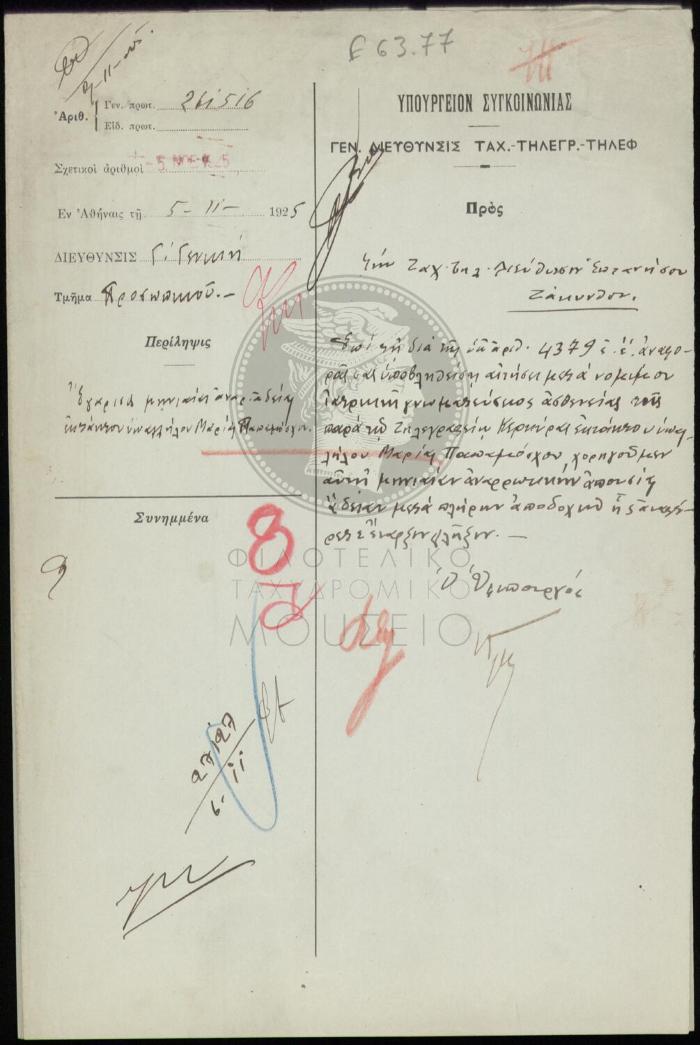 F 63.77
Ἀριθ.
Γεν. πρωτ. 261516
Εἰδ. πρωτ.
Σχετικοὶ ἀριθμοὶ
Ἐν Ἀθήναις τῇ 5-11- 1925
ΔΙΕΥΘΥΝΣΙΣ Γ. Γενική
Τμῆμα Προσωπικοῦ.-
Περίληψις
μηνιαία ἀναρ. ἄδεια
ἐκτάκτου ὑπαλλήλου Μαρίας Παπαμόσχου.
Συνημμένα
8
ΥΠΟΥΡΓΕΙΟΝ ΣΥΓΚΟΙΝΩΝΙΑΣ
ΓΕΝ. ΔΙΕΥΘΥΝΣΙΣ ΤΑΧ.-ΤΗΛΕΓΡ.-ΤΗΛΕΦ
Πρὸς
Τὴν Ταχ. Τηλ. Διεύθυνσιν Ἑπτανήσου
Ζάκυνθον.
Ἐπὶ τῇ διὰ τῆς ὑπ' ἀριθ. 4379 ἐ. ἔ. ἀναφο
ρᾶς σας ὑποβληθείσῃ αἰτήσει μετὰ νομίμου
ἰατρικῆς γνωματεύσεως ἀσθενείας τῆς
παρὰ τῷ Τηλεγραφείῳ Κερκύρας ἐκτάκτου ὑπαλ
λήλου Μαρίας Παπαμόσχου, χορηγοῦμεν
αὐτῇ μηνιαίαν ἀναρρωτικὴν ἀπουσίας
ἄδειαν μετὰ πλήρων ἀποδοχῶν ἧς ἀναφέ
ρετε ἔναρξιν λῆξιν. —
Ὁ Ὑπουργός
ΦΙΛΟΤΕΛΙΚΟ
ΤΑΧΥΔΡΟΜΙΚΟ
ΜΟΥΣΕΙΟ